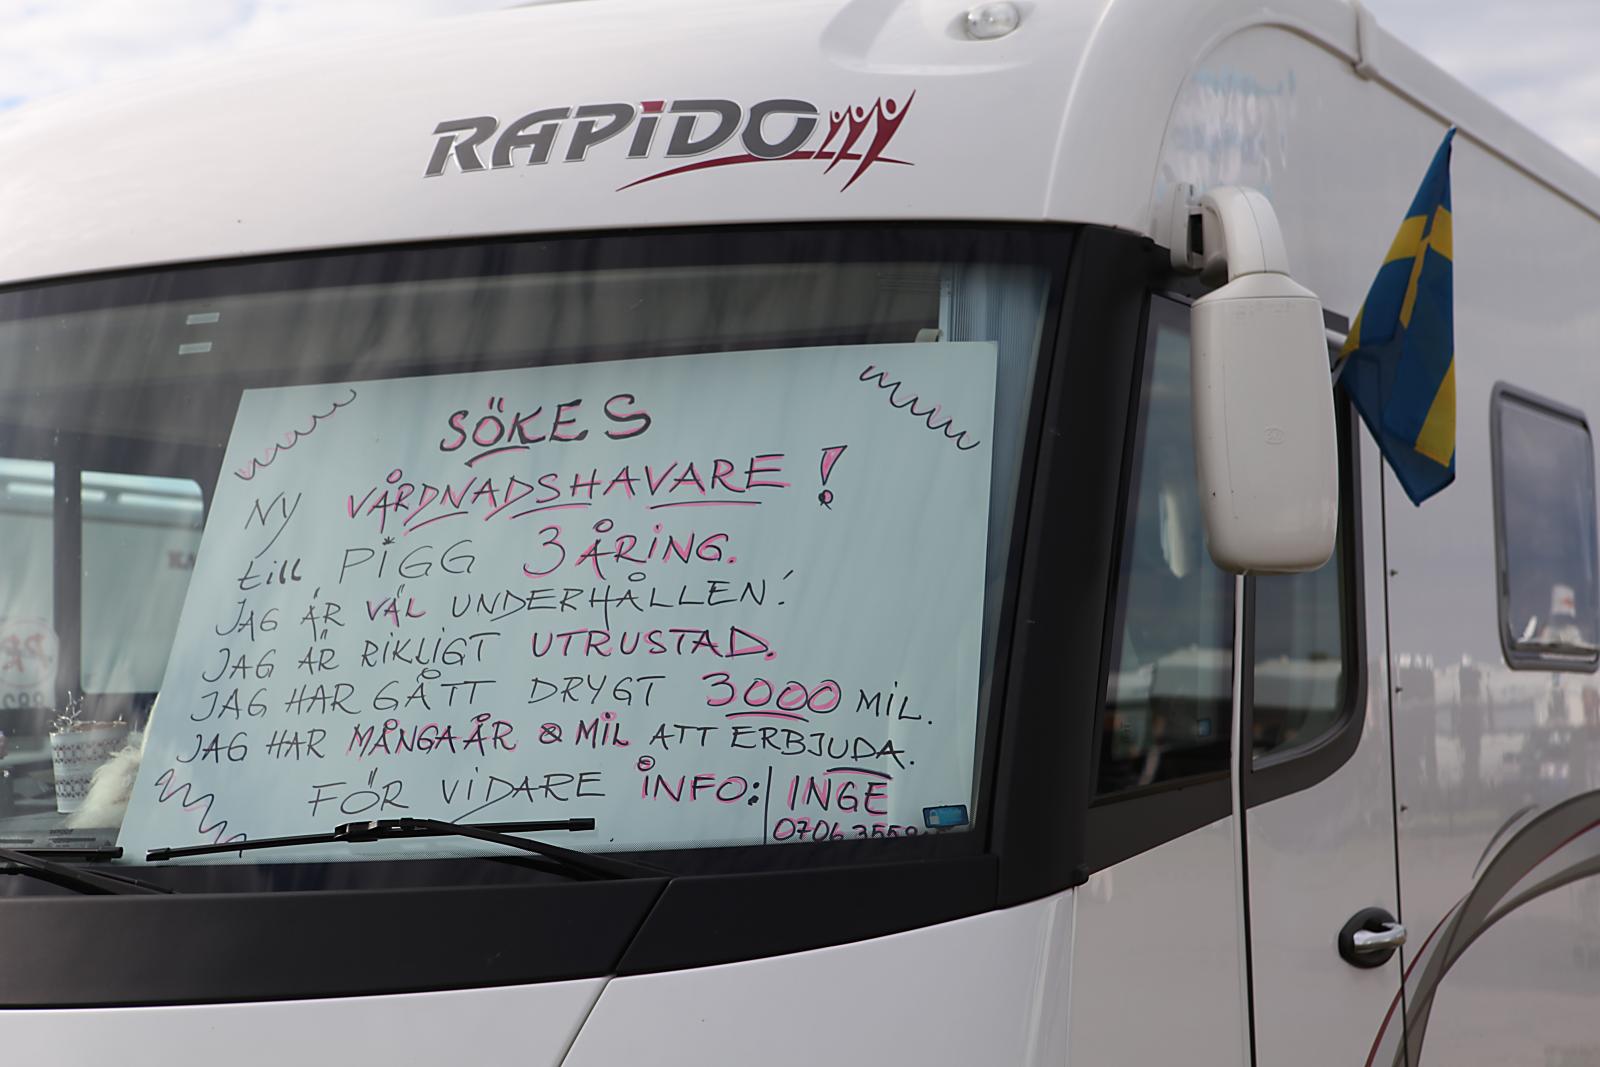 RAPIDO
SÖKES
NY VÅRDNADSHAVARE!
till PIGG 3 ÅRING.
JAG ÄR VÄL UNDERHÅLLEN!
JAG ÄR RIKLIGT UTRUSTAD.
JAG HAR GÅTT DRYGT 3000 MIL.
JAG HAR MÅNGA ÅR & MIL ATT ERBJUDA.
FÖR VIDARE INFO: INGE
0706 355